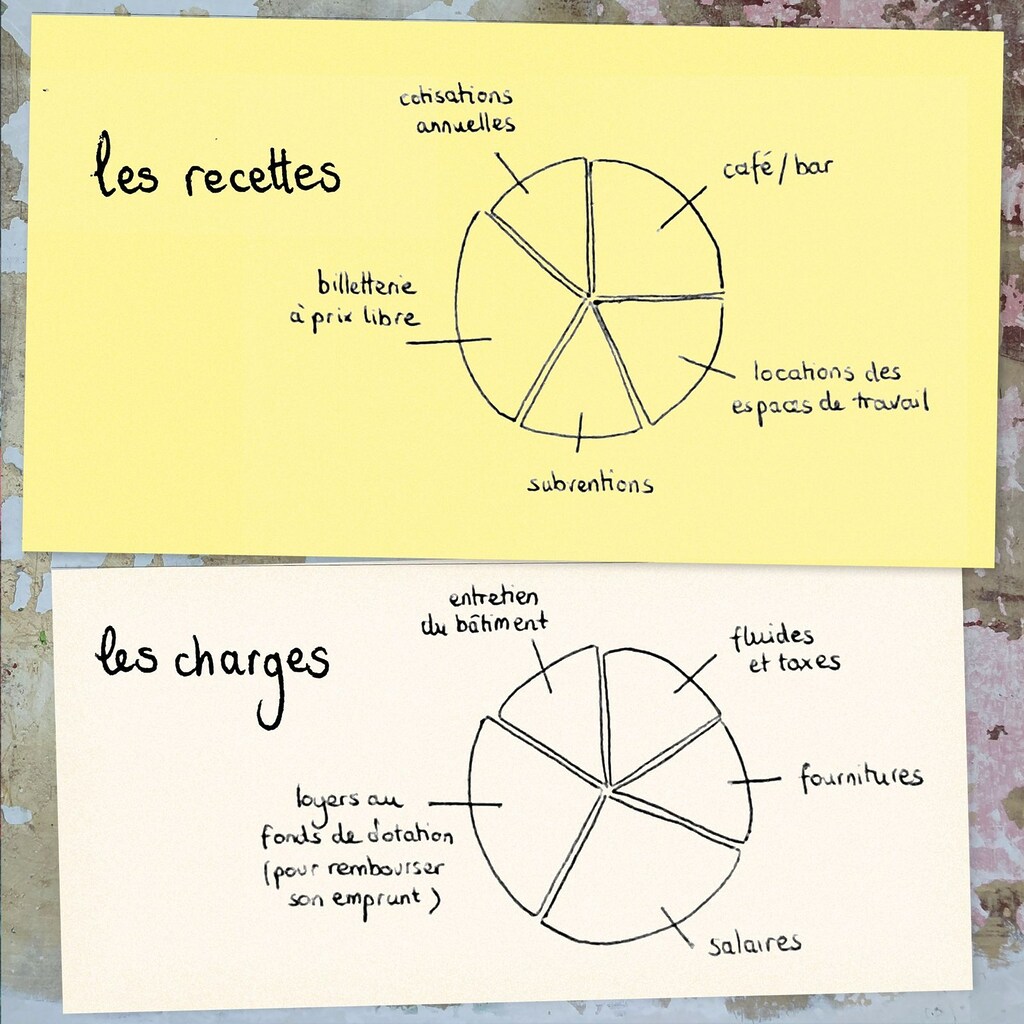 les recettes
cotisations
annuelles
café/bar
billetterie
à prix libre
locations des
espaces de travail
subventions
les charges
entretien
du bâtiment
fluides
et taxes
fournitures
loyers au
fonds de dotation
(pour rembourser
son emprunt)
salaires